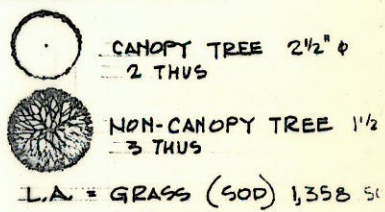 CANOPY TREE 2½" ϕ
2 THUS
NON-CANOPY TREE 1½
3 THUS
L.A. = GRASS (SOD) 1,358